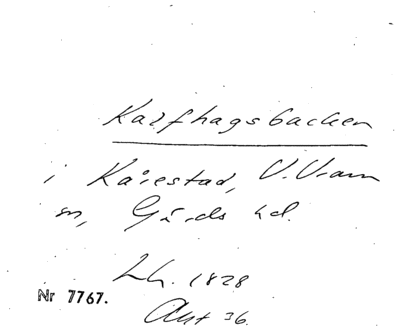 Kalfhagsbacken
i Kårestad, V. Vram
sn, Gärds hd.
Lh. 1828
Nr 7767.
Akt 36.